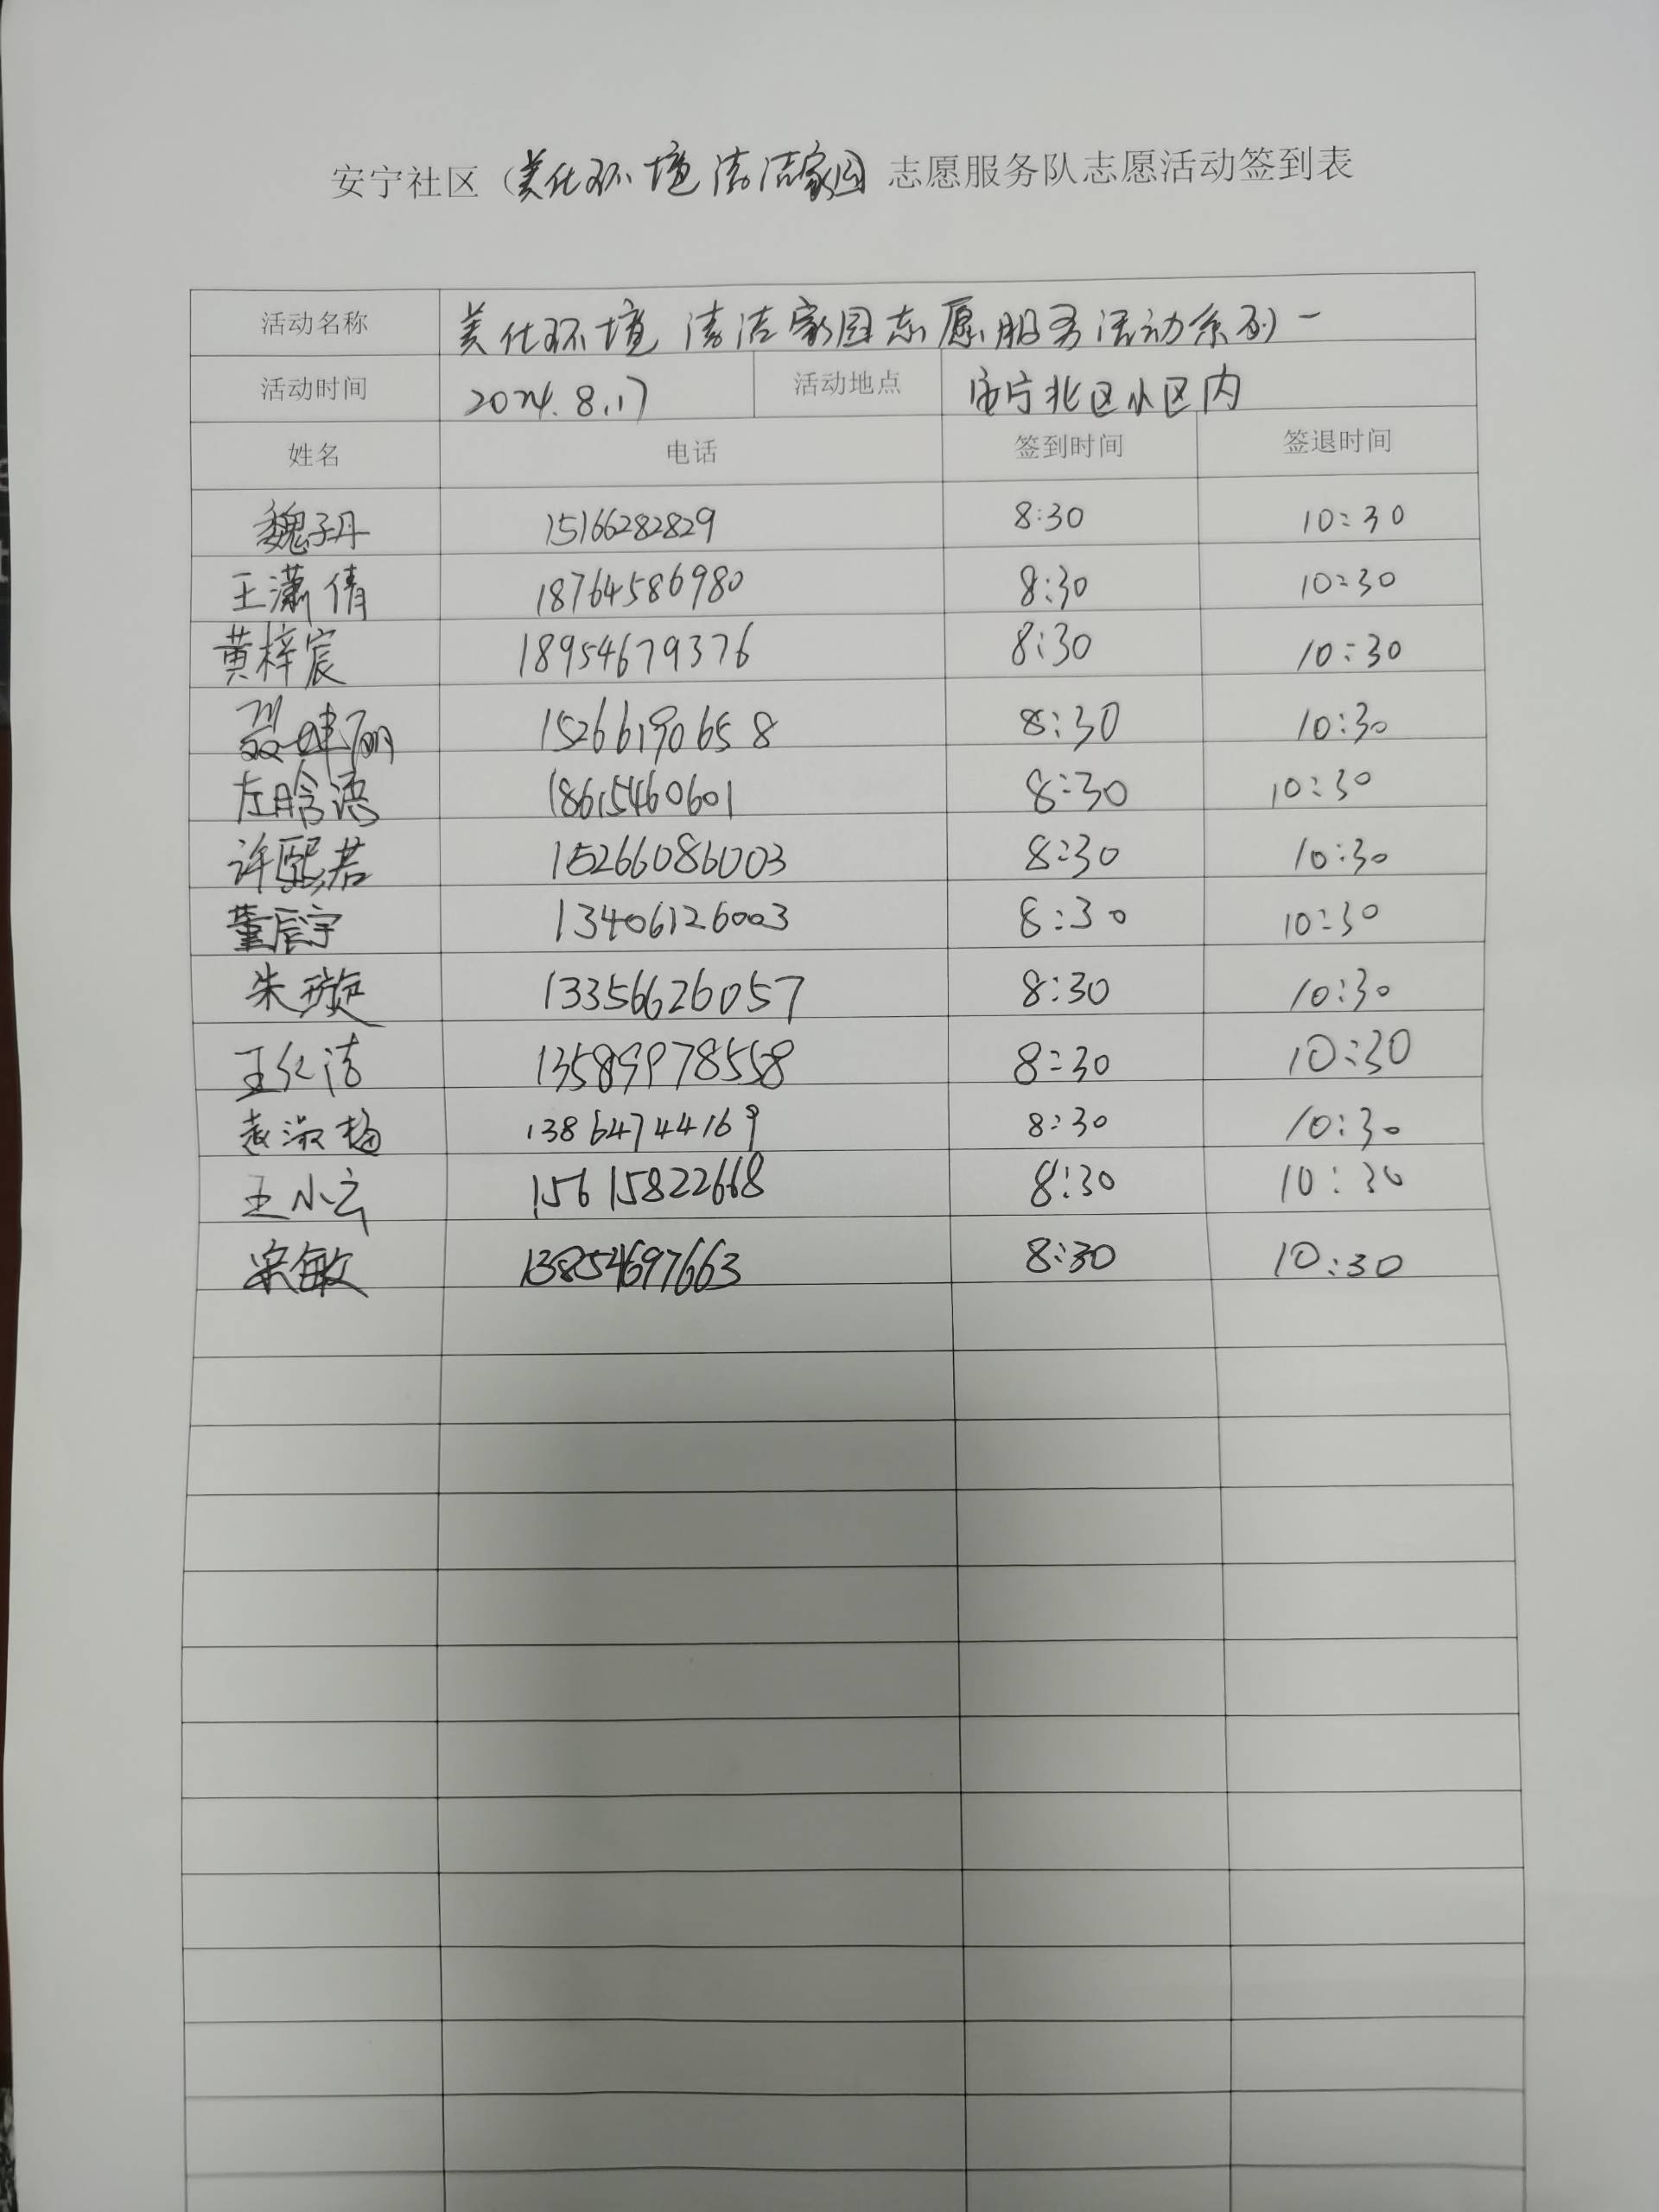 安宁社区（美化环境 清洁家园 志愿服务队志愿活动签到表
活动名称 美化环境 清洁家园志愿服务活动系列一
活动时间 2024.8.17 活动地点 安宁北区小区内
姓名 电话 签到时间 签退时间
魏子丹 15166282829 8:30 10:30
王潇倩 18764586980 8:30 10:30
黄梓宸 18954679376 8:30 10:30
聂建丽 15266190658 8:30 10:30
左晗语 18615460601 8:30 10:30
许熙若 15266086003 8:30 10:30
董宸宇 13406126003 8:30 10:30
朱璇 13356626057 8:30 10:30
王仁洁 13589978558 8:30 10:30
袁淑梅 13864744169 8:30 10:30
王小云 15615822668 8:30 10:30
宋敏 13854697663 8:30 10:30